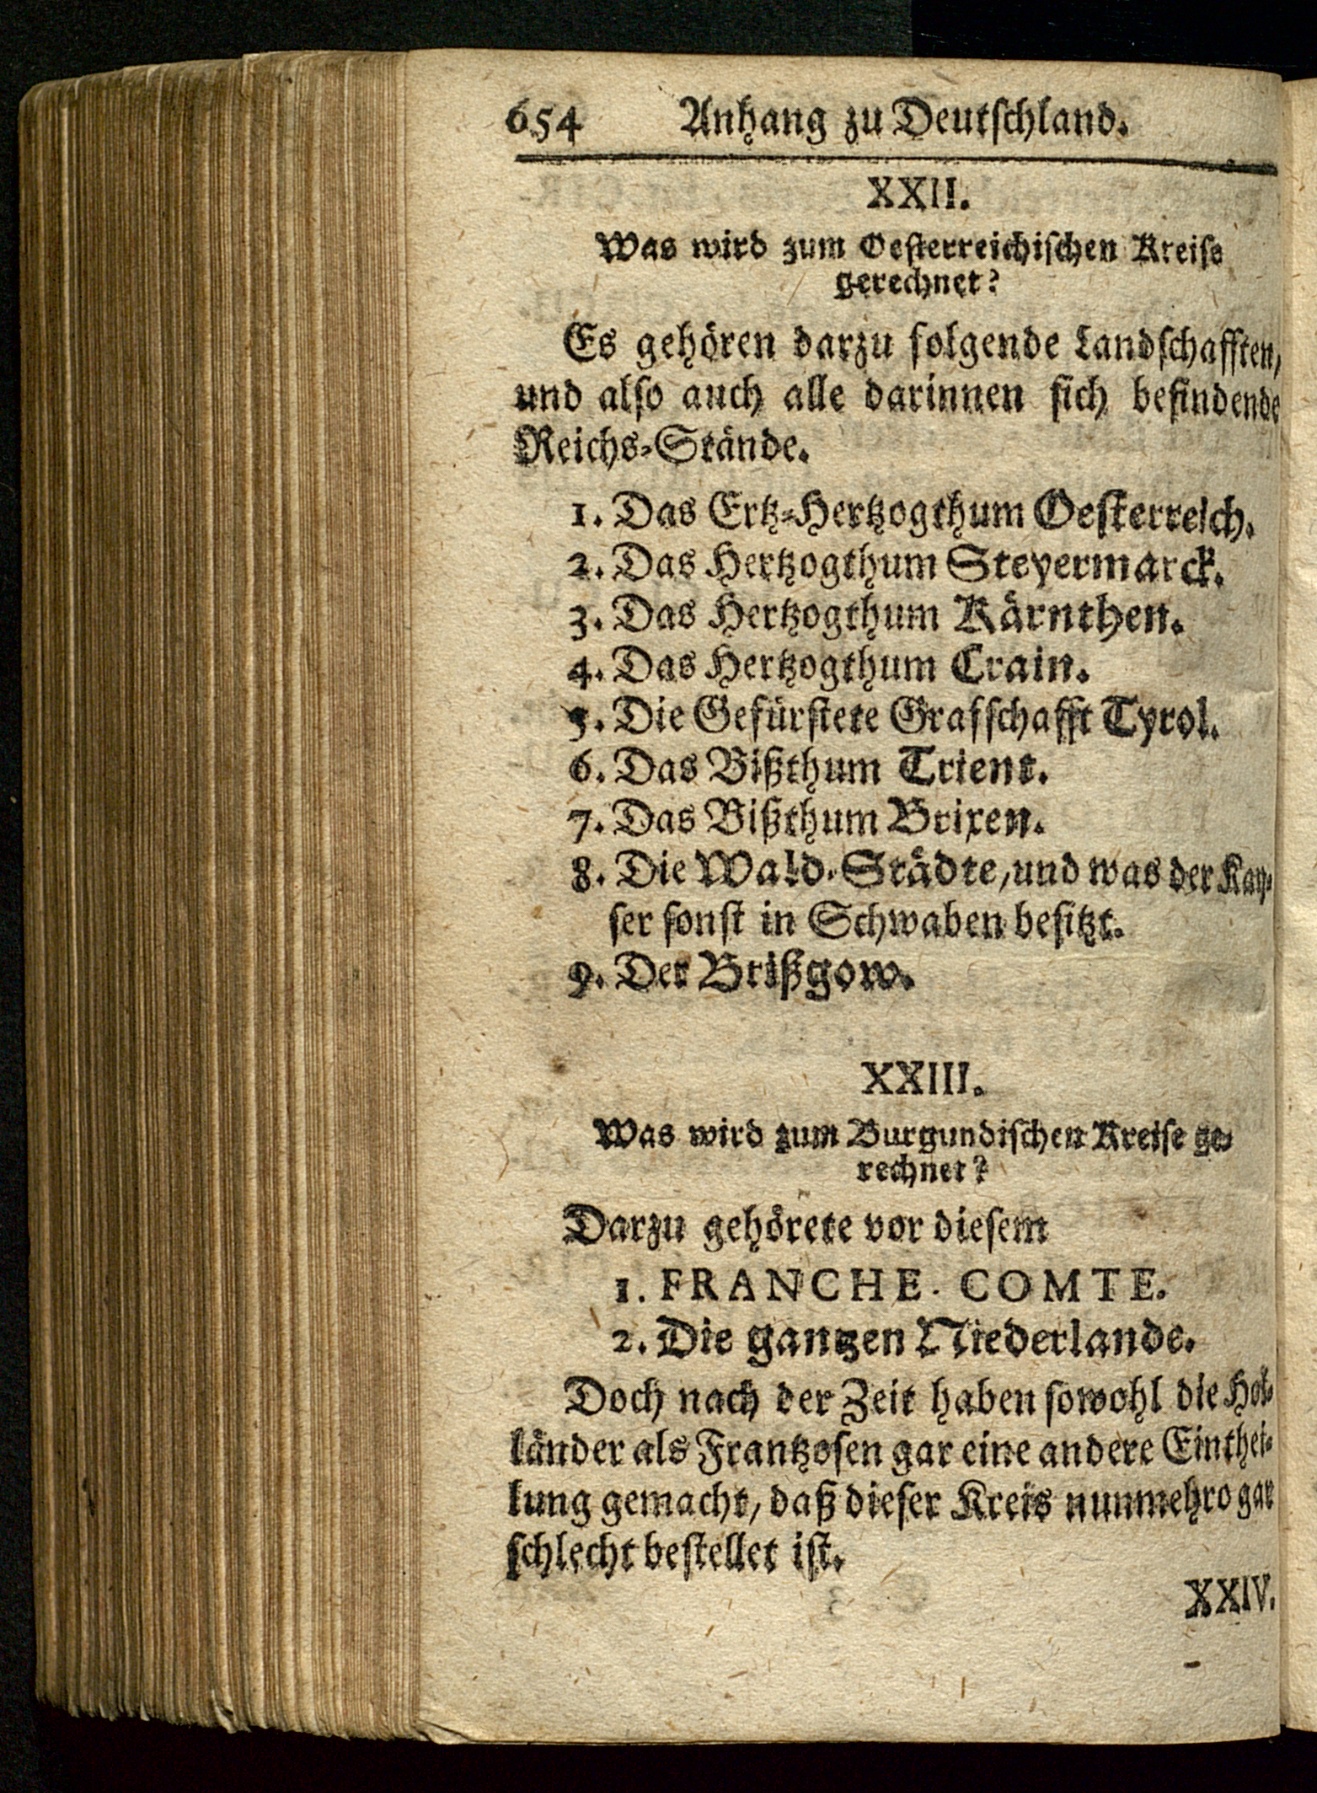 654 Anhang zu Deutſchland.
XXII.
Was wird zum Oeſterreichiſchen Kreiſe
gerechnet?
Es gehören darzu folgende Landſchafften,
und alſo auch alle darinnen ſich befindende
Reichs-Stände.
1. Das Ertz-Hertzogthum Oeſterreich.
2. Das Hertzogthum Steyermarck.
3. Das Hertzogthum Kärnthen.
4. Das Hertzogthum Crain.
5. Die Gefürſtete Grafſchafft Tyrol.
6. Das Bißthum Trient.
7. Das Bißthum Brixen.
8. Die Wald-Städte, und was der Kay-
ſer ſonſt in Schwaben beſitzt.
9. Der Brißgow.
XXIII.
Was wird zum Burgundiſchen Kreiſe ge-
rechnet?
Darzu gehörete vor dieſem
1. FRANCHE-COMTE.
2. Die gantzen Niederlande.
Doch nach der Zeit haben ſowohl die Hol-
länder als Frantzoſen gar eine andere Einthei-
lung gemacht, daß dieſer Kreis nunmehro gar
ſchlecht beſtellet iſt.
XXIV.